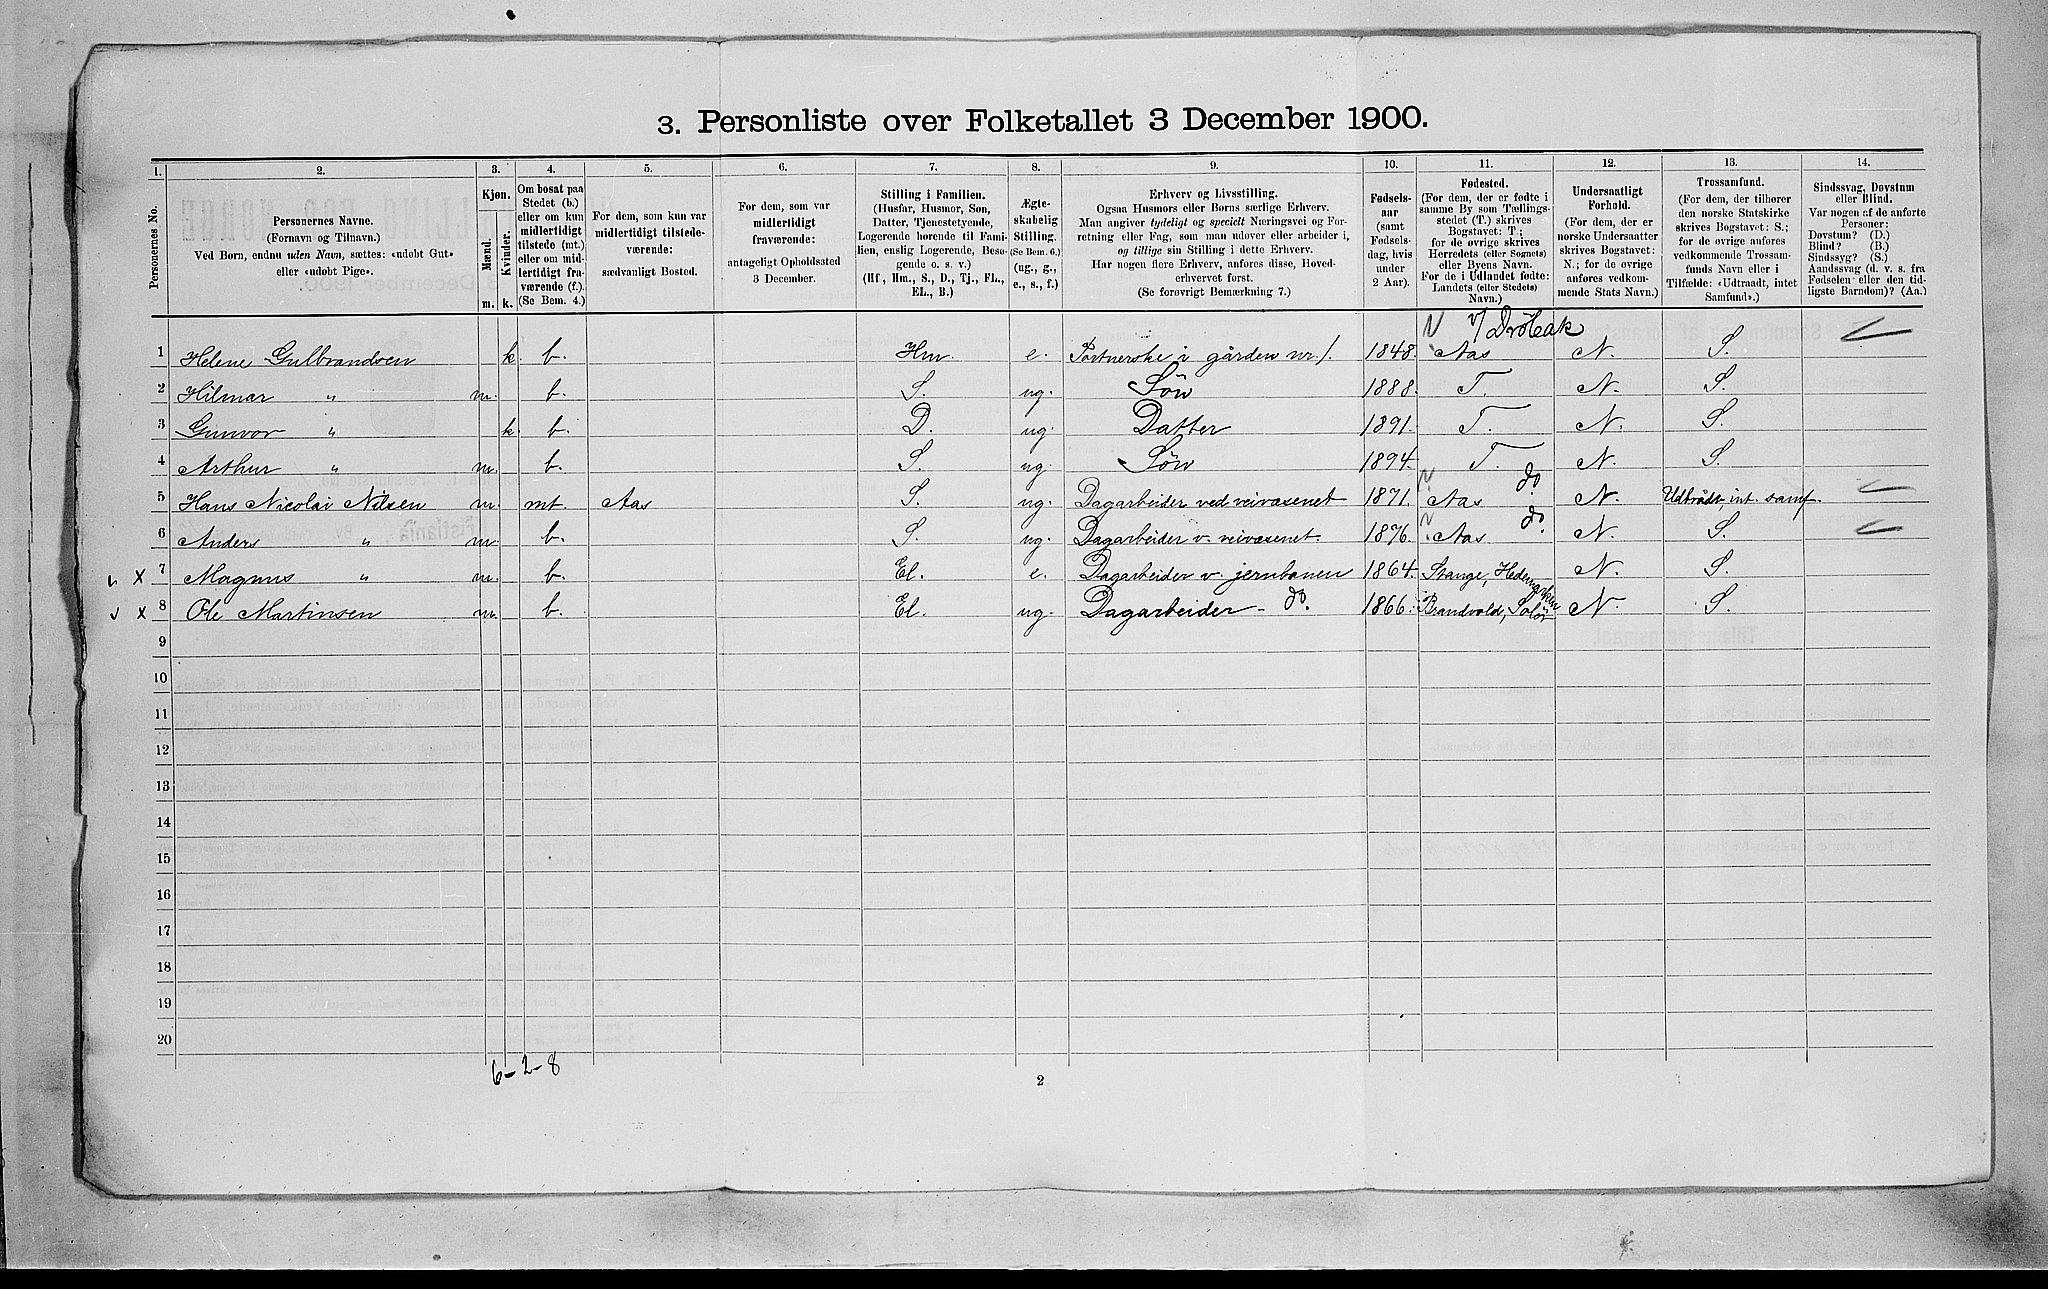 3. Personliste over Folketallet 3 December 1900.
1. 2. 3. 4. 5. 6. 7. 8. 9. 10. 11. 12. 13. 14.
Personernes No.
Personernes Navne.
(Fornavn og Tilnavn.)
Ved Børn, endnu uden Navn, sættes: «udøbt Gut»
eller «udøbt Pige».
Kjøn.
Mænd.
Kvinder.
m. k.
Om bosat paa
Stedet (b.)
eller om kun
midlertidigt
tilstede (mt.)
eller om mid-
lertidigt fra-
værende (f.).
(Se Bem. 4.)
For dem, som kun var
midlertidigt tilstede-
værende:
sædvanligt Bosted.
For dem, som var
midlertidigt
fraværende:
antageligt Opholdssted
3 December.
Stilling i Familien.
(Husfar, Husmor, Søn,
Datter, Tjenestetyende,
Logerende hørende til Fami-
lien, enslig Logerende, Besø-
gende o. s. v.)
(Hf., Hm., S., D., Tj., FL.,
EL., B.)
Ægte-
skabelig
Stilling.
(Se Bem. 6.)
(ug., g.,
e., s., f.)
Erhverv og Livsstilling.
Ogsaa Husmors eller Børns særlige Erhverv.
Man angiver tydeligt og specielt Næringsvei og For-
retning eller Fag, som man udøver eller arbeider i,
og tillige sin Stilling i dette Erhverv.
Har nogen flere Erhverv, anføres disse, Hoved-
erhvervet først.
(Se forøvrigt Bemærkning 7.)
Fødsels-
aar
(samt
Fødsels-
dag, hvis
under
2 Aar).
Fødested.
(For dem, der er fødte i
samme By som Tællings-
stedet (T.) skrives
Bogstavet: T.;
for de øvrige skrives
Herredets (eller Sognets)
eller Byens Navn.
For de i Udlandet fødte:
Landets (eller Stedets)
Navn.)
Undersaatligt
Forhold.
(For dem, der er
norske Undersaatter
skrives Bogstavet:
N.; for de øvrige
anføres vedkom-
mende Stats Navn.)
Trossamfund.
(For dem, der tilhører
den norske Statskirke
skrives Bogstavet: S.;
for de øvrige anføres
vedkommende Trossam-
funds Navn eller i
Tilfælde: «Udtraadt, intet
Samfund».)
Sindssvag, Døvstum
eller Blind.
Var nogen af de anførte
Personer:
Døvstum? (D.)
Blind? (B.)
Sindssyg? (S.)
Aandssvag (d. v. s. fra
Fødselen eller den tid-
ligste Barndom)? (Aa.)
v/ Drøbak
1 Helene Gulbrandsen k. b. Hm. e. Portnerske i gården nr. 1. 1848. Aas N. S.
2 Hilmar " m. b. S. ug. Søn 1888. T. N. S.
3 Gunvor " k. b. D. ug. Datter 1891. T. N. S.
4 Arthur " m. b. S. ug. Søn 1894. T. N. S.
5 Hans Nicolai Nilsen m. mt. Aas S. ug. Dagarbeider ved veivæsenet 1871. Aas do. N. Udtrådt, int. samf.
6 Anders " m. b. S. ug. Dagarbeider v. veivæsenet. 1876. Aas do. N. S.
x 7 Magnus " m. b. El. e. Dagarbeider v. jernbanen 1864. Stange, Hedemarken N. S.
x 8 Ole Martinsen m. b. El. ug. Dagarbeider - do. 1866. Brandvold, Solør N. S.
9
10
11
12
13
14
15
16
17
18
19
20
6-2-8
2